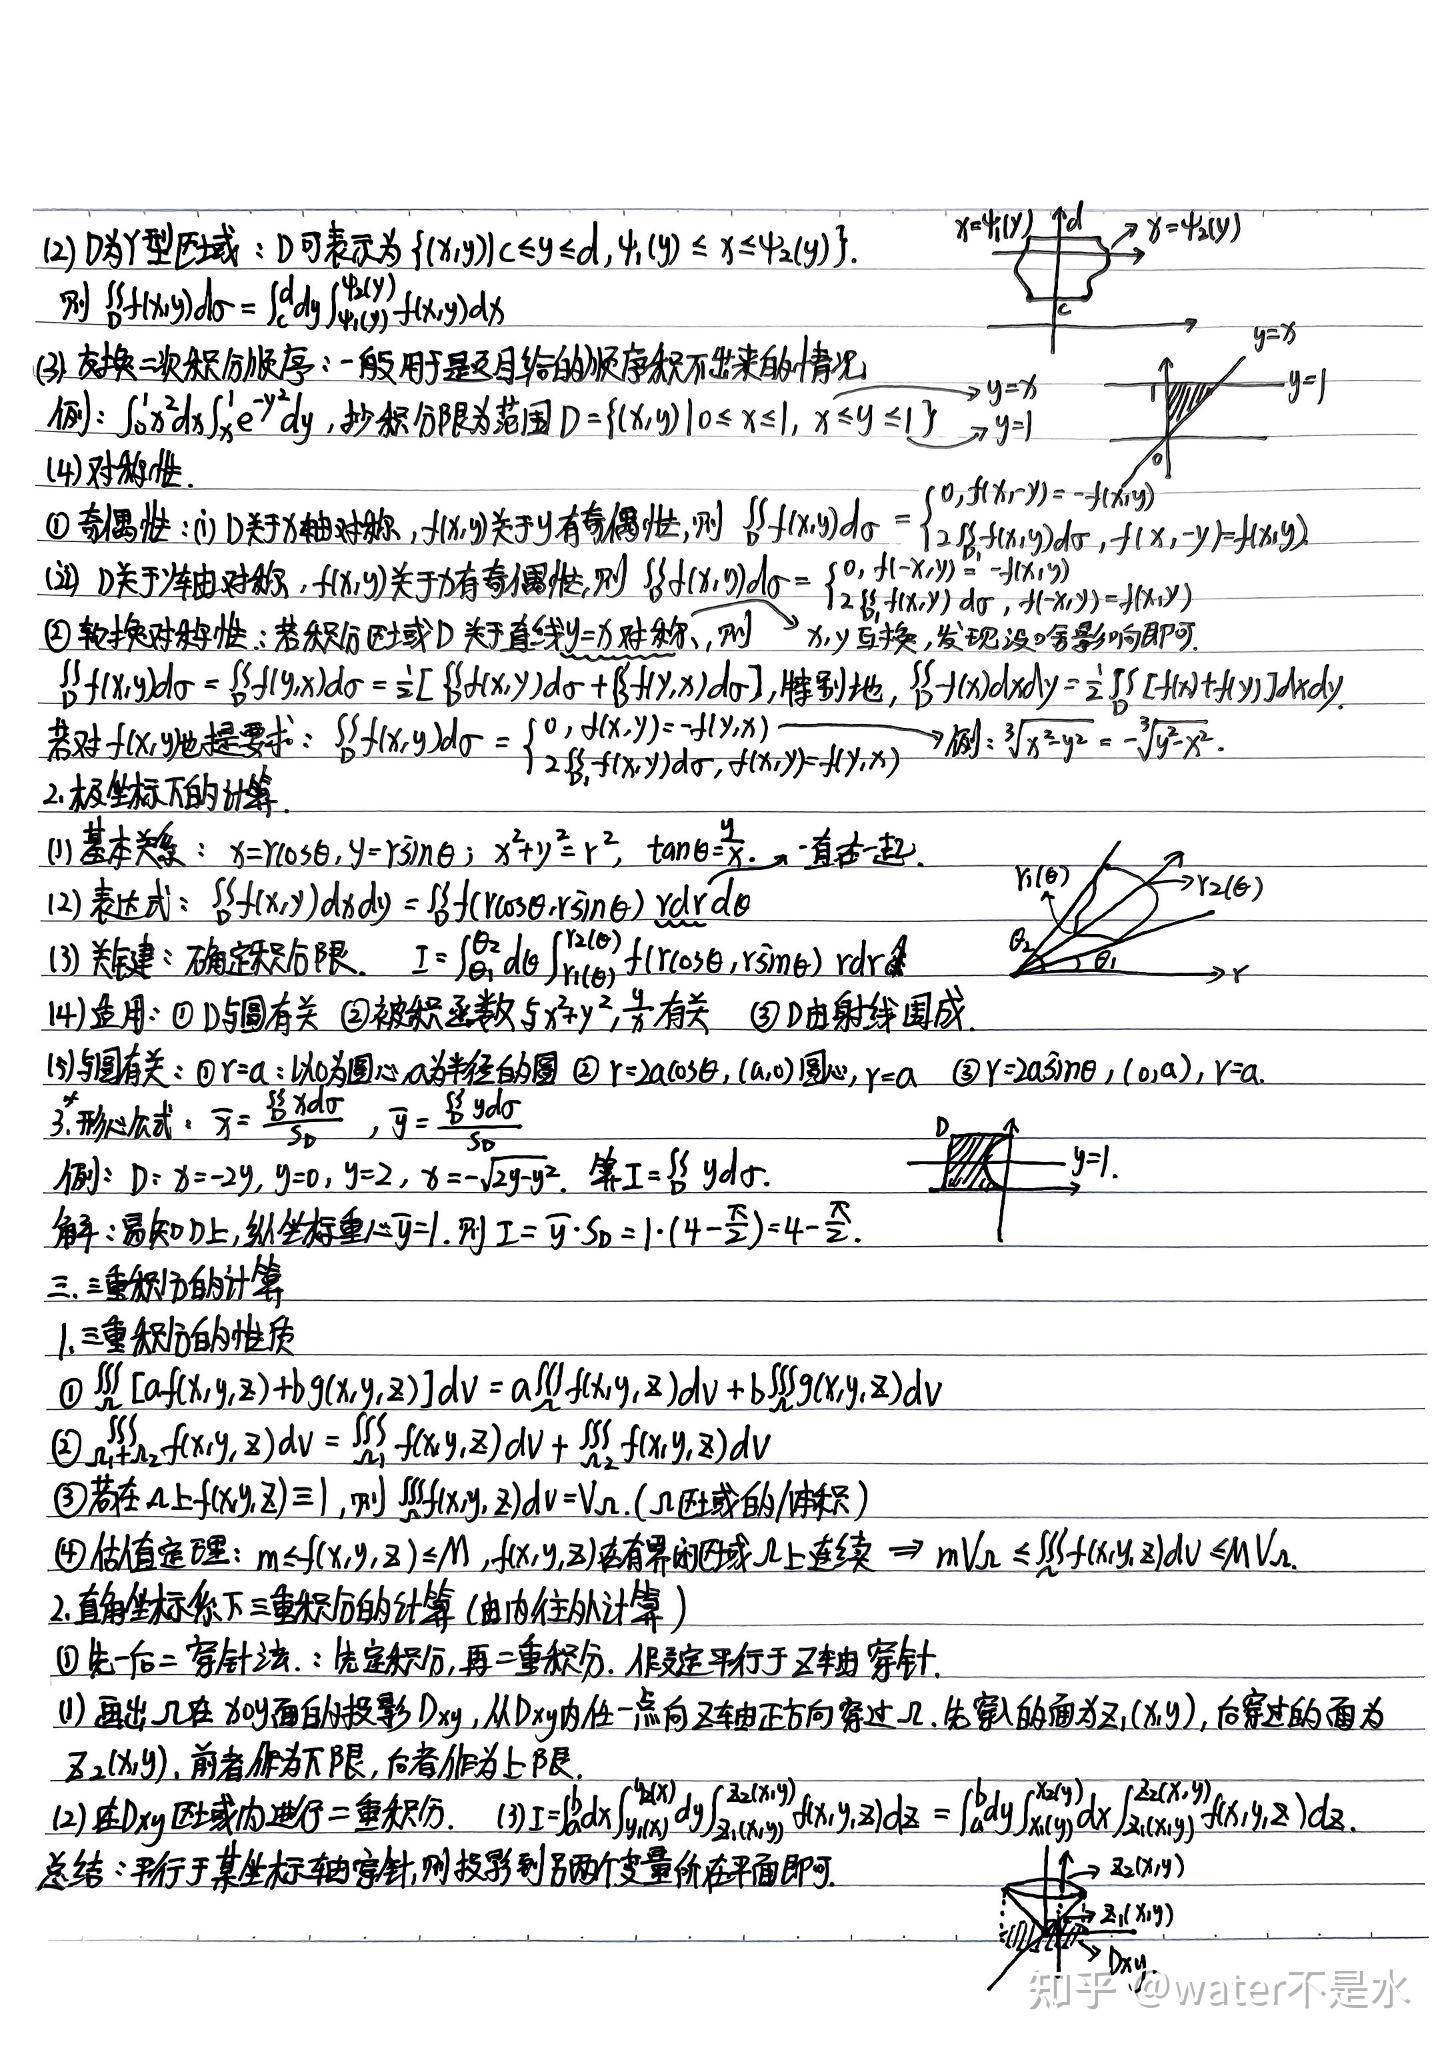 (2) D为Y型区域：D可表示为{(x,y)|c≤y≤d, ψ₁(y)≤x≤ψ₂(y)}.
x=ψ₁(y) d x=ψ₂(y)
c
则 ∬_D f(x,y)dσ=∫_c^d dy∫_{ψ₁(y)}^{ψ₂(y)} f(x,y)dx
(3) 交换二次积分顺序：一般用于是题目给的顺序积不出来的情况
y=x
1 y=1
0
例：∫₀¹x²dx∫ₓ¹e^{-y²}dy，抄积分限为范围D={(x,y)|0≤x≤1, x≤y≤1} →y=x →y=1
(4)对称性.
① 奇偶性：(i) D关于x轴对称，f(x,y)关于y有奇偶性，则 ∬_D f(x,y)dσ={0, f(x,-y)=-f(x,y)
2∬_{D₁}f(x,y)dσ, f(x,-y)=f(x,y).
(ii) D关于y轴对称，f(x,y)关于x有奇偶性，则 ∬_D f(x,y)dσ={0, f(-x,y)=-f(x,y)
2∬_{D₁}f(x,y)dσ, f(-x,y)=f(x,y)
② 轮换对称性：若积分区域D关于直线y=x对称，则 →x,y互换，发现没啥影响即可.
∬_D f(x,y)dσ=∬_D f(y,x)dσ=½[∬_D f(x,y)dσ+∬_D f(y,x)dσ]，特别地，∬_D f(x)dxdy=½∬_D[f(x)+f(y)]dxdy.
若对f(x,y)也提要求：∬_D f(x,y)dσ={0, f(x,y)=-f(y,x) →例：∛(x²-y²)=-∛(y²-x²).
2∬_{D₁}f(x,y)dσ, f(x,y)=f(y,x)
2.极坐标下的计算.
(1)基本关系：x=rcosθ, y=rsinθ；x²+y²=r², tanθ=y/x. →一直在一起.
(2)表达式：∬_D f(x,y)dxdy=∬_D f(rcosθ,rsinθ) rdrdθ
r₁(θ) →r₂(θ)
θ₂ θ₁ r
(3)关键：确定积分限. I=∫_{θ₁}^{θ₂}dθ∫_{r₁(θ)}^{r₂(θ)} f(rcosθ,rsinθ) rdr
(4)适用：①D与圆有关 ②被积函数与x²+y², y/x有关 ③D由射线围成.
(5)与圆有关：①r=a：以0为圆心,a为半径的圆 ②r=2acosθ, (a,0)圆心, r=a ③r=2asinθ, (0,a), r=a.
3.*形心公式：x̄=∬_D xdσ/S_D , ȳ=∬_D ydσ/S_D
D y=1.
例：D: x=-2y, y=0, y=2, x=-√(2y-y²). 算I=∬_D ydσ.
解：易知D上，纵坐标重心ȳ=1. 则I=ȳ·S_D=1·(4-π/2)=4-π/2.
三.三重积分的计算
1.三重积分的性质
① ∭_Ω[af(x,y,z)+bg(x,y,z)]dv=a∭_Ω f(x,y,z)dv+b∭_Ω g(x,y,z)dv
② ∭_{Ω₁+Ω₂}f(x,y,z)dv=∭_{Ω₁}f(x,y,z)dv+∭_{Ω₂}f(x,y,z)dv
③若在Ω上f(x,y,z)≡1，则∭_Ω f(x,y,z)dv=V_Ω.(Ω区域的体积)
④估值定理：m≤f(x,y,z)≤M, f(x,y,z)在有界闭区域Ω上连续⇒mV_Ω≤∭_Ω f(x,y,z)dv≤MV_Ω.
2.直角坐标系下三重积分的计算(由内往外计算)
①先一后二 穿针法.：先定积分，再二重积分. 假定平行于z轴穿针.
(1)画出Ω在xoy面的投影Dxy，从Dxy内任一点向z轴正方向穿过Ω. 先穿入的面为z₁(x,y)，后穿过的面为
z₂(x,y). 前者作为下限，后者作为上限.
(2)在Dxy区域内进行二重积分. (3)I=∫_a^b dx∫_{y₁(x)}^{y₂(x)}dy∫_{z₁(x,y)}^{z₂(x,y)}f(x,y,z)dz=∫_a^b dy∫_{x₁(y)}^{x₂(y)}dx∫_{z₁(x,y)}^{z₂(x,y)}f(x,y,z)dz.
总结：平行于某坐标轴穿针，则投影到另两个变量所在平面即可.
→z₂(x,y)
→z₁(x,y)
→Dxy.
知乎 @water不是水